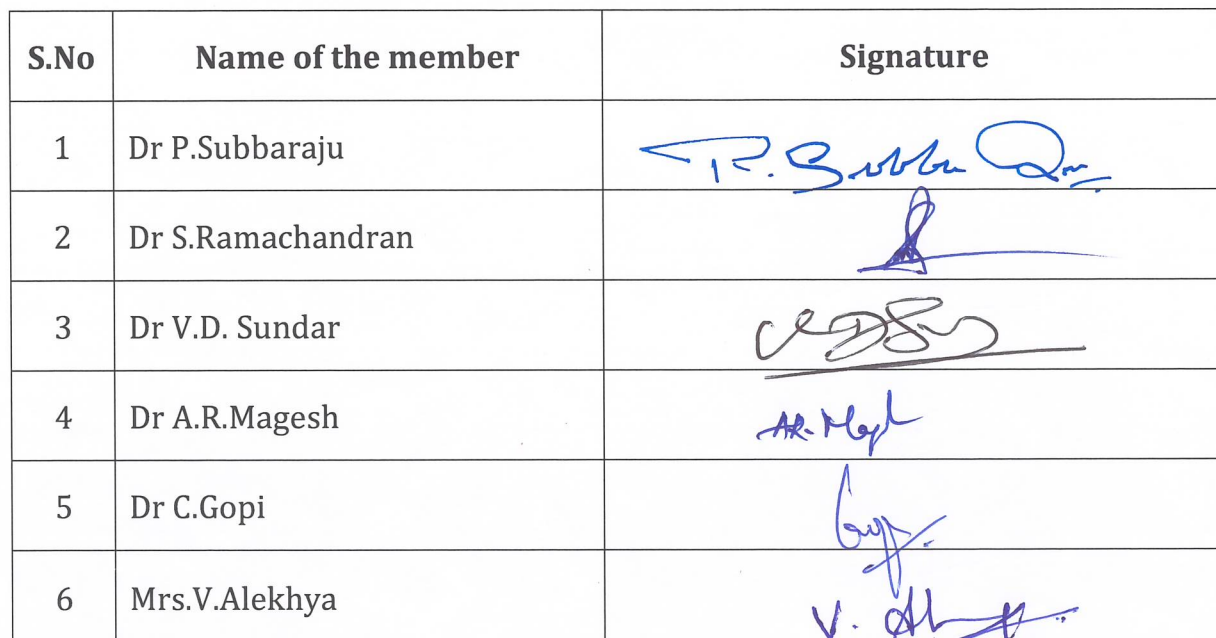 S.No Name of the member Signature
1 Dr P.Subbaraju P. Subba
2 Dr S.Ramachandran
3 Dr V.D. Sundar
4 Dr A.R.Magesh AR.
5 Dr C.Gopi
6 Mrs.V.Alekhya V.